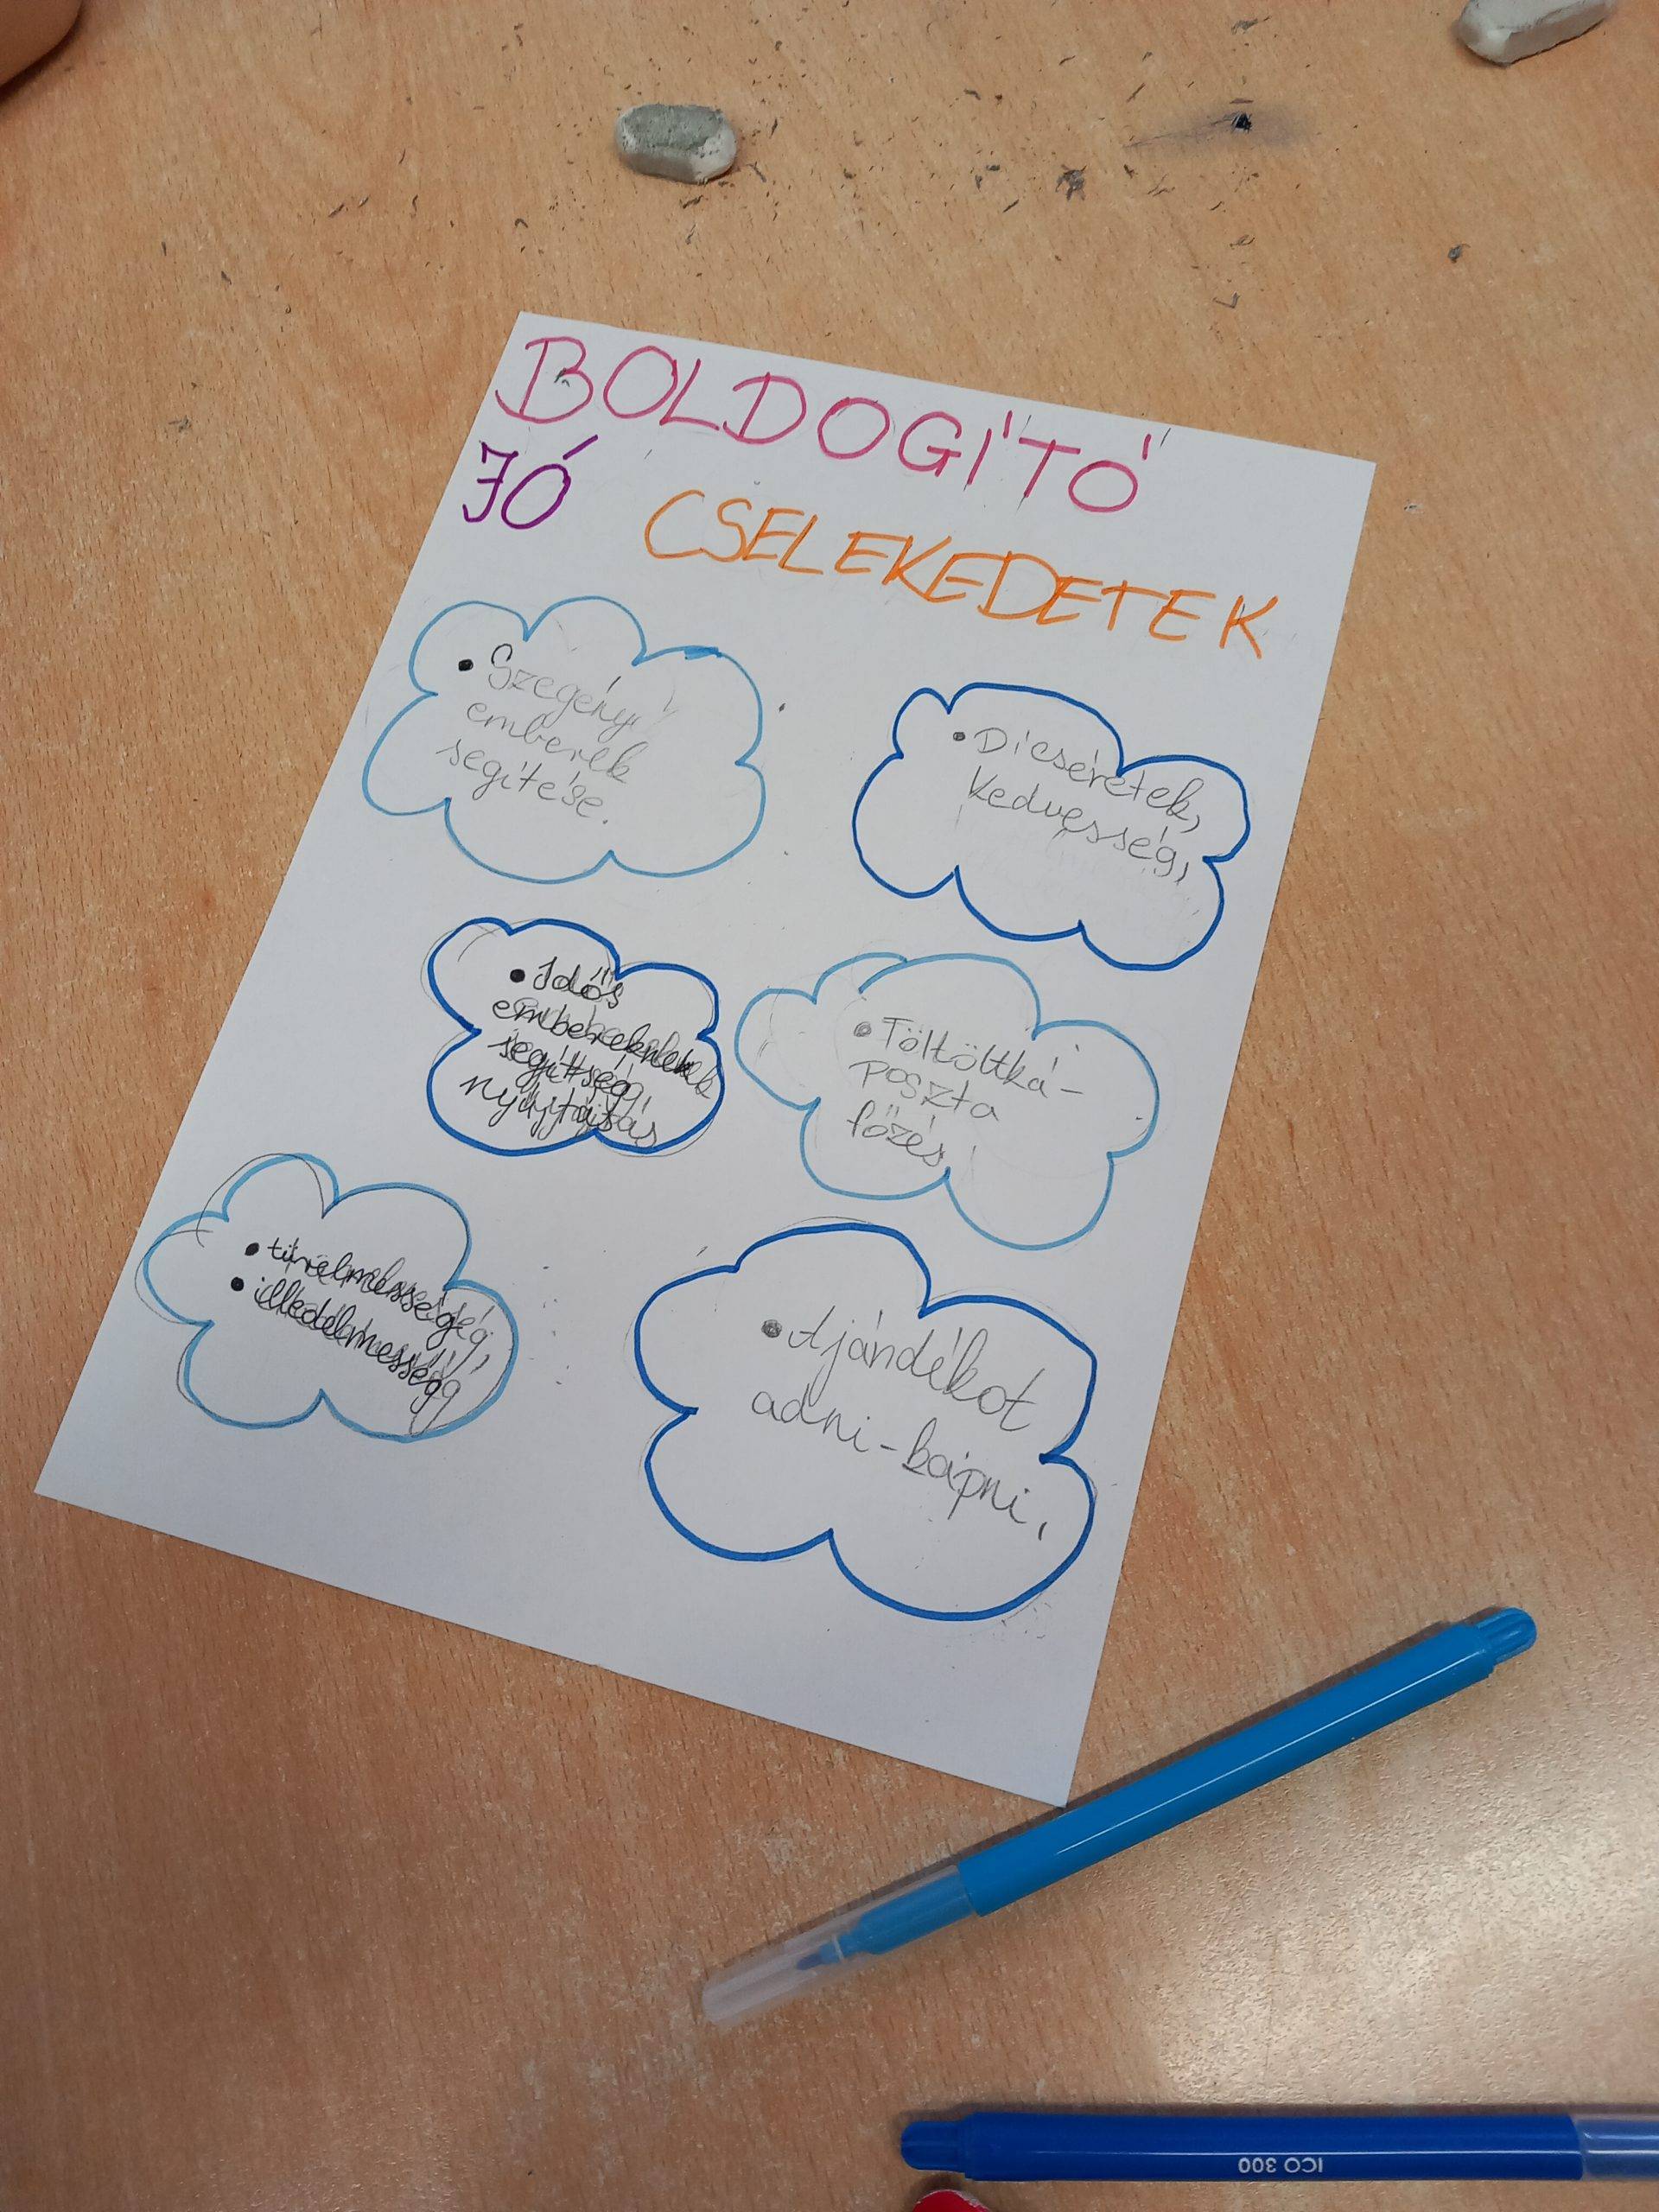 BOLDOGÍTÓ
JÓ CSELEKEDETEK
• Szegény
emberek
segítése.
• Dicséretek,
kedvesség,
• Idős
embereknek
segítség,
nyújtás
• Töltöttká-
poszta
főzés
• türelmesség,
• illedelmesség
• Ajándékot
adni-kapni,
ICO 300